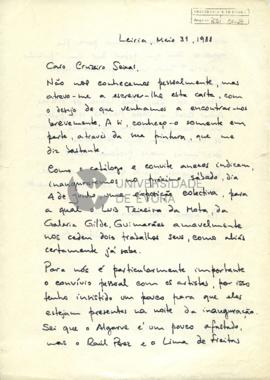 Leiria, Maio 31, 1988
Caro Cruzeiro Seixas,
Não nos conhecemos pessoalmente, mas
atrevo-me a escrever-lhe esta carta, com
o desejo de que venhamos a encontrar-nos
brevemente. A si, conheço-o somente em
parte, através da sua pintura, que me
diz bastante.
Como catálogo e convite anexos indicam,
inauguramos no próximo sábado, dia
4 de Junho uma exposição colectiva, para
a qual o Luís Teixeira da Mota, da
Galeria Gilde, Guimarães amavelmente
nos cedeu dois trabalhos seus, como aliás
certamente já sabe.
Para nós é particularmente importante
o convívio pessoal com os artistas, por isso
tenho insistido um pouco para que eles
estejam presentes na noite da inauguração.
Sei que o Algarve é um pouco afastado,
mas o Raúl Perez e o Lima de Freitas
UNIVERSIDADE
DE ÉVORA